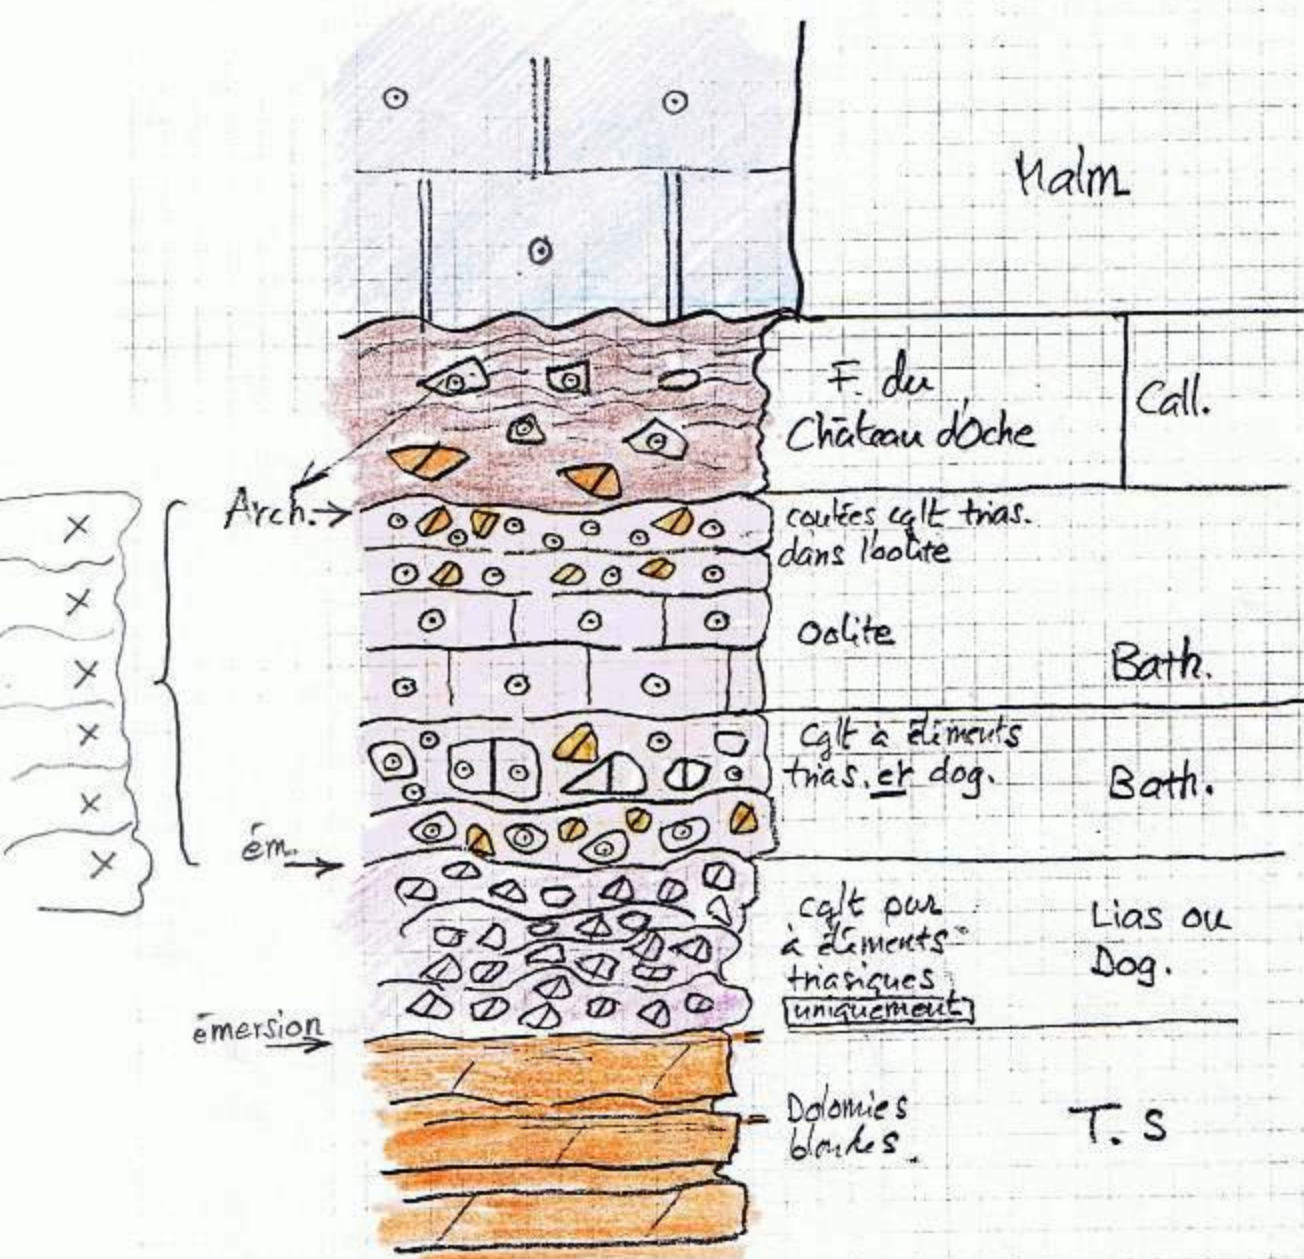 Malm
F. du
Château d'Oche
Call.
Arch.
coulées cglt trias.
dans l'oolite
Oolite
Bath.
cglt à éléments
trias. et dog.
Bath.
ém.
cglt pur
à éléments
triasiques
uniquement
Lias ou
Dog.
émersion
Dolomies
blondes.
T. S